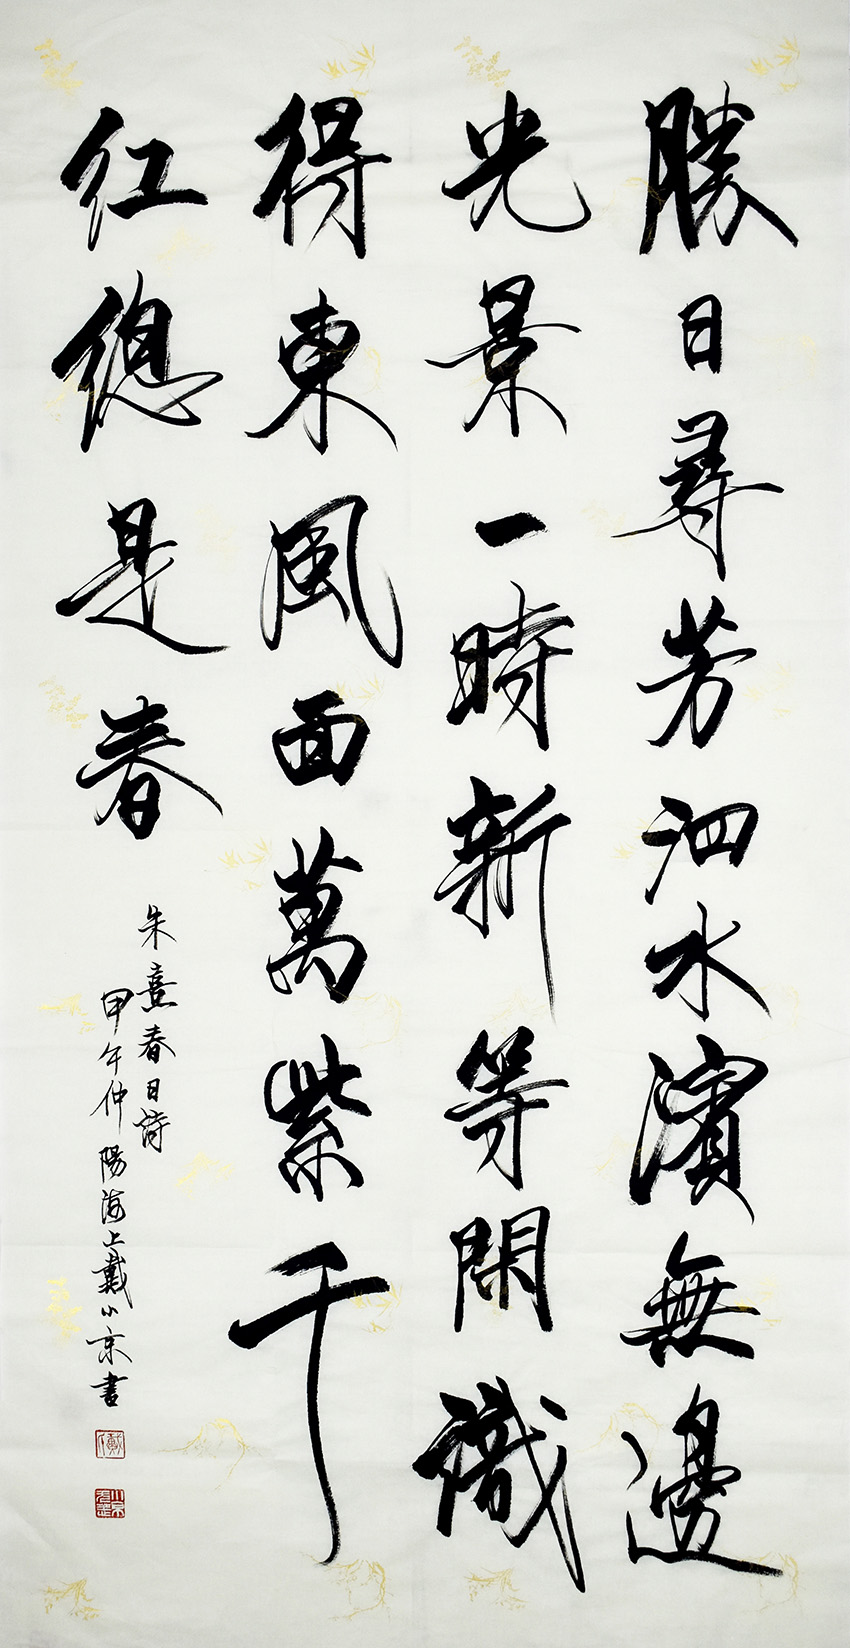 勝日尋芳泗水濱無邊
光景一時新等閑識
得東風面萬紫千
紅總是春
朱熹春日詩
甲午仲陽海上戴小京書